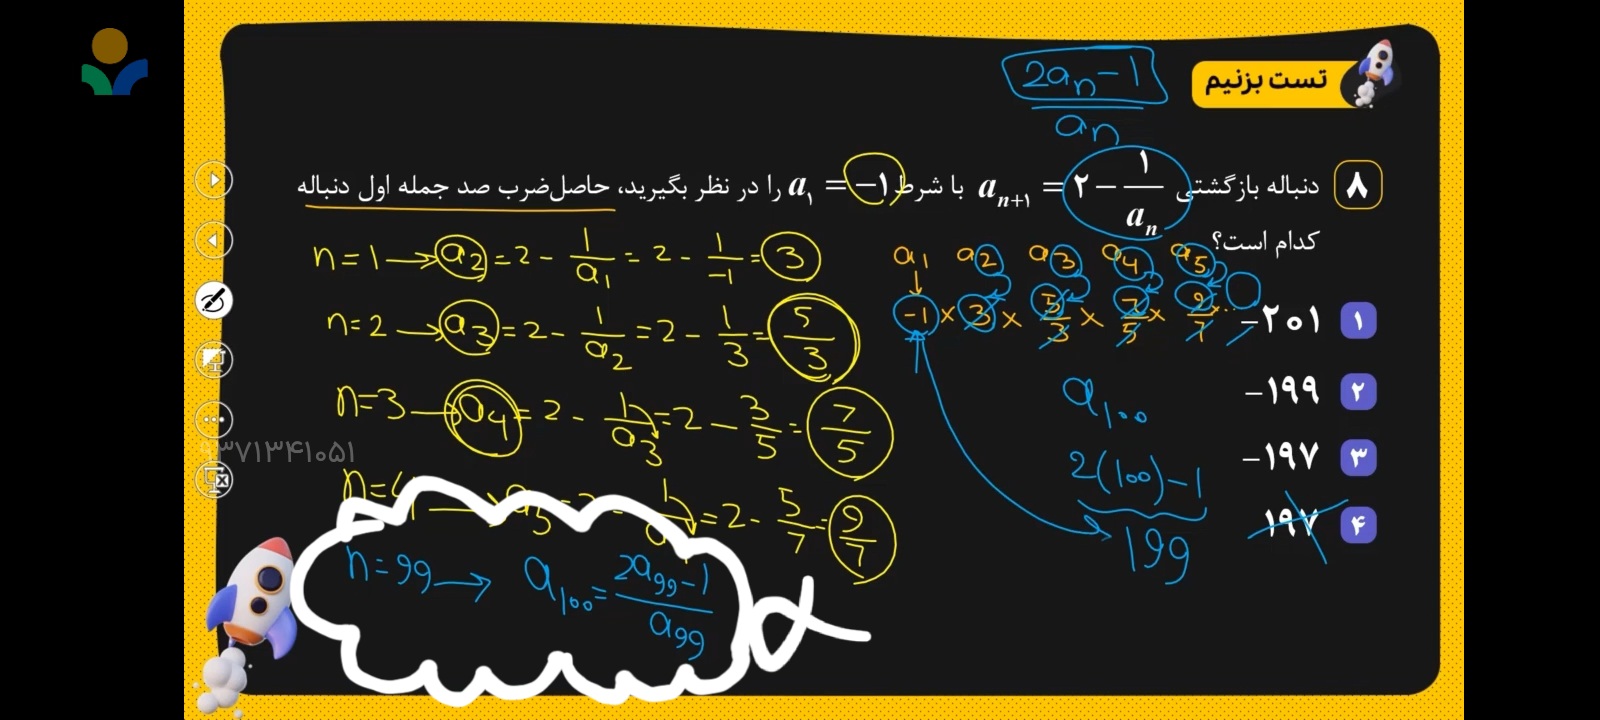 تست بزنیم
2aₙ-1
aₙ
۸ دنباله بازگشتی aₙ₊₁ = ۲ - ۱/aₙ با شرط a₁ = -۱ را در نظر بگیرید، حاصل‌ضرب صد جمله اول دنباله
کدام است؟
۱ -۲۰۱
۲ -۱۹۹
۳ -۱۹۷
۴ ۱۹۷
n=1 → a₂ = 2 - 1/a₁ = 2 - 1/-1 = 3
n=2 → a₃ = 2 - 1/a₂ = 2 - 1/3 = 5/3
n=3 → a₄ = 2 - 1/a₃ = 2 - 3/5 = 7/5
= 2 - 5/7 = 9/7
n=99 → a₁₀₀ = 2a₉₉-1/a₉₉
α
a₁ a₂ a₃ a₄ a₅
-1 × 3 × 5/3 × 7/5 × 9/7 × ...
a₁₀₀
2(100)-1
199
۹۳۷۱۳۴۱۰۵۱